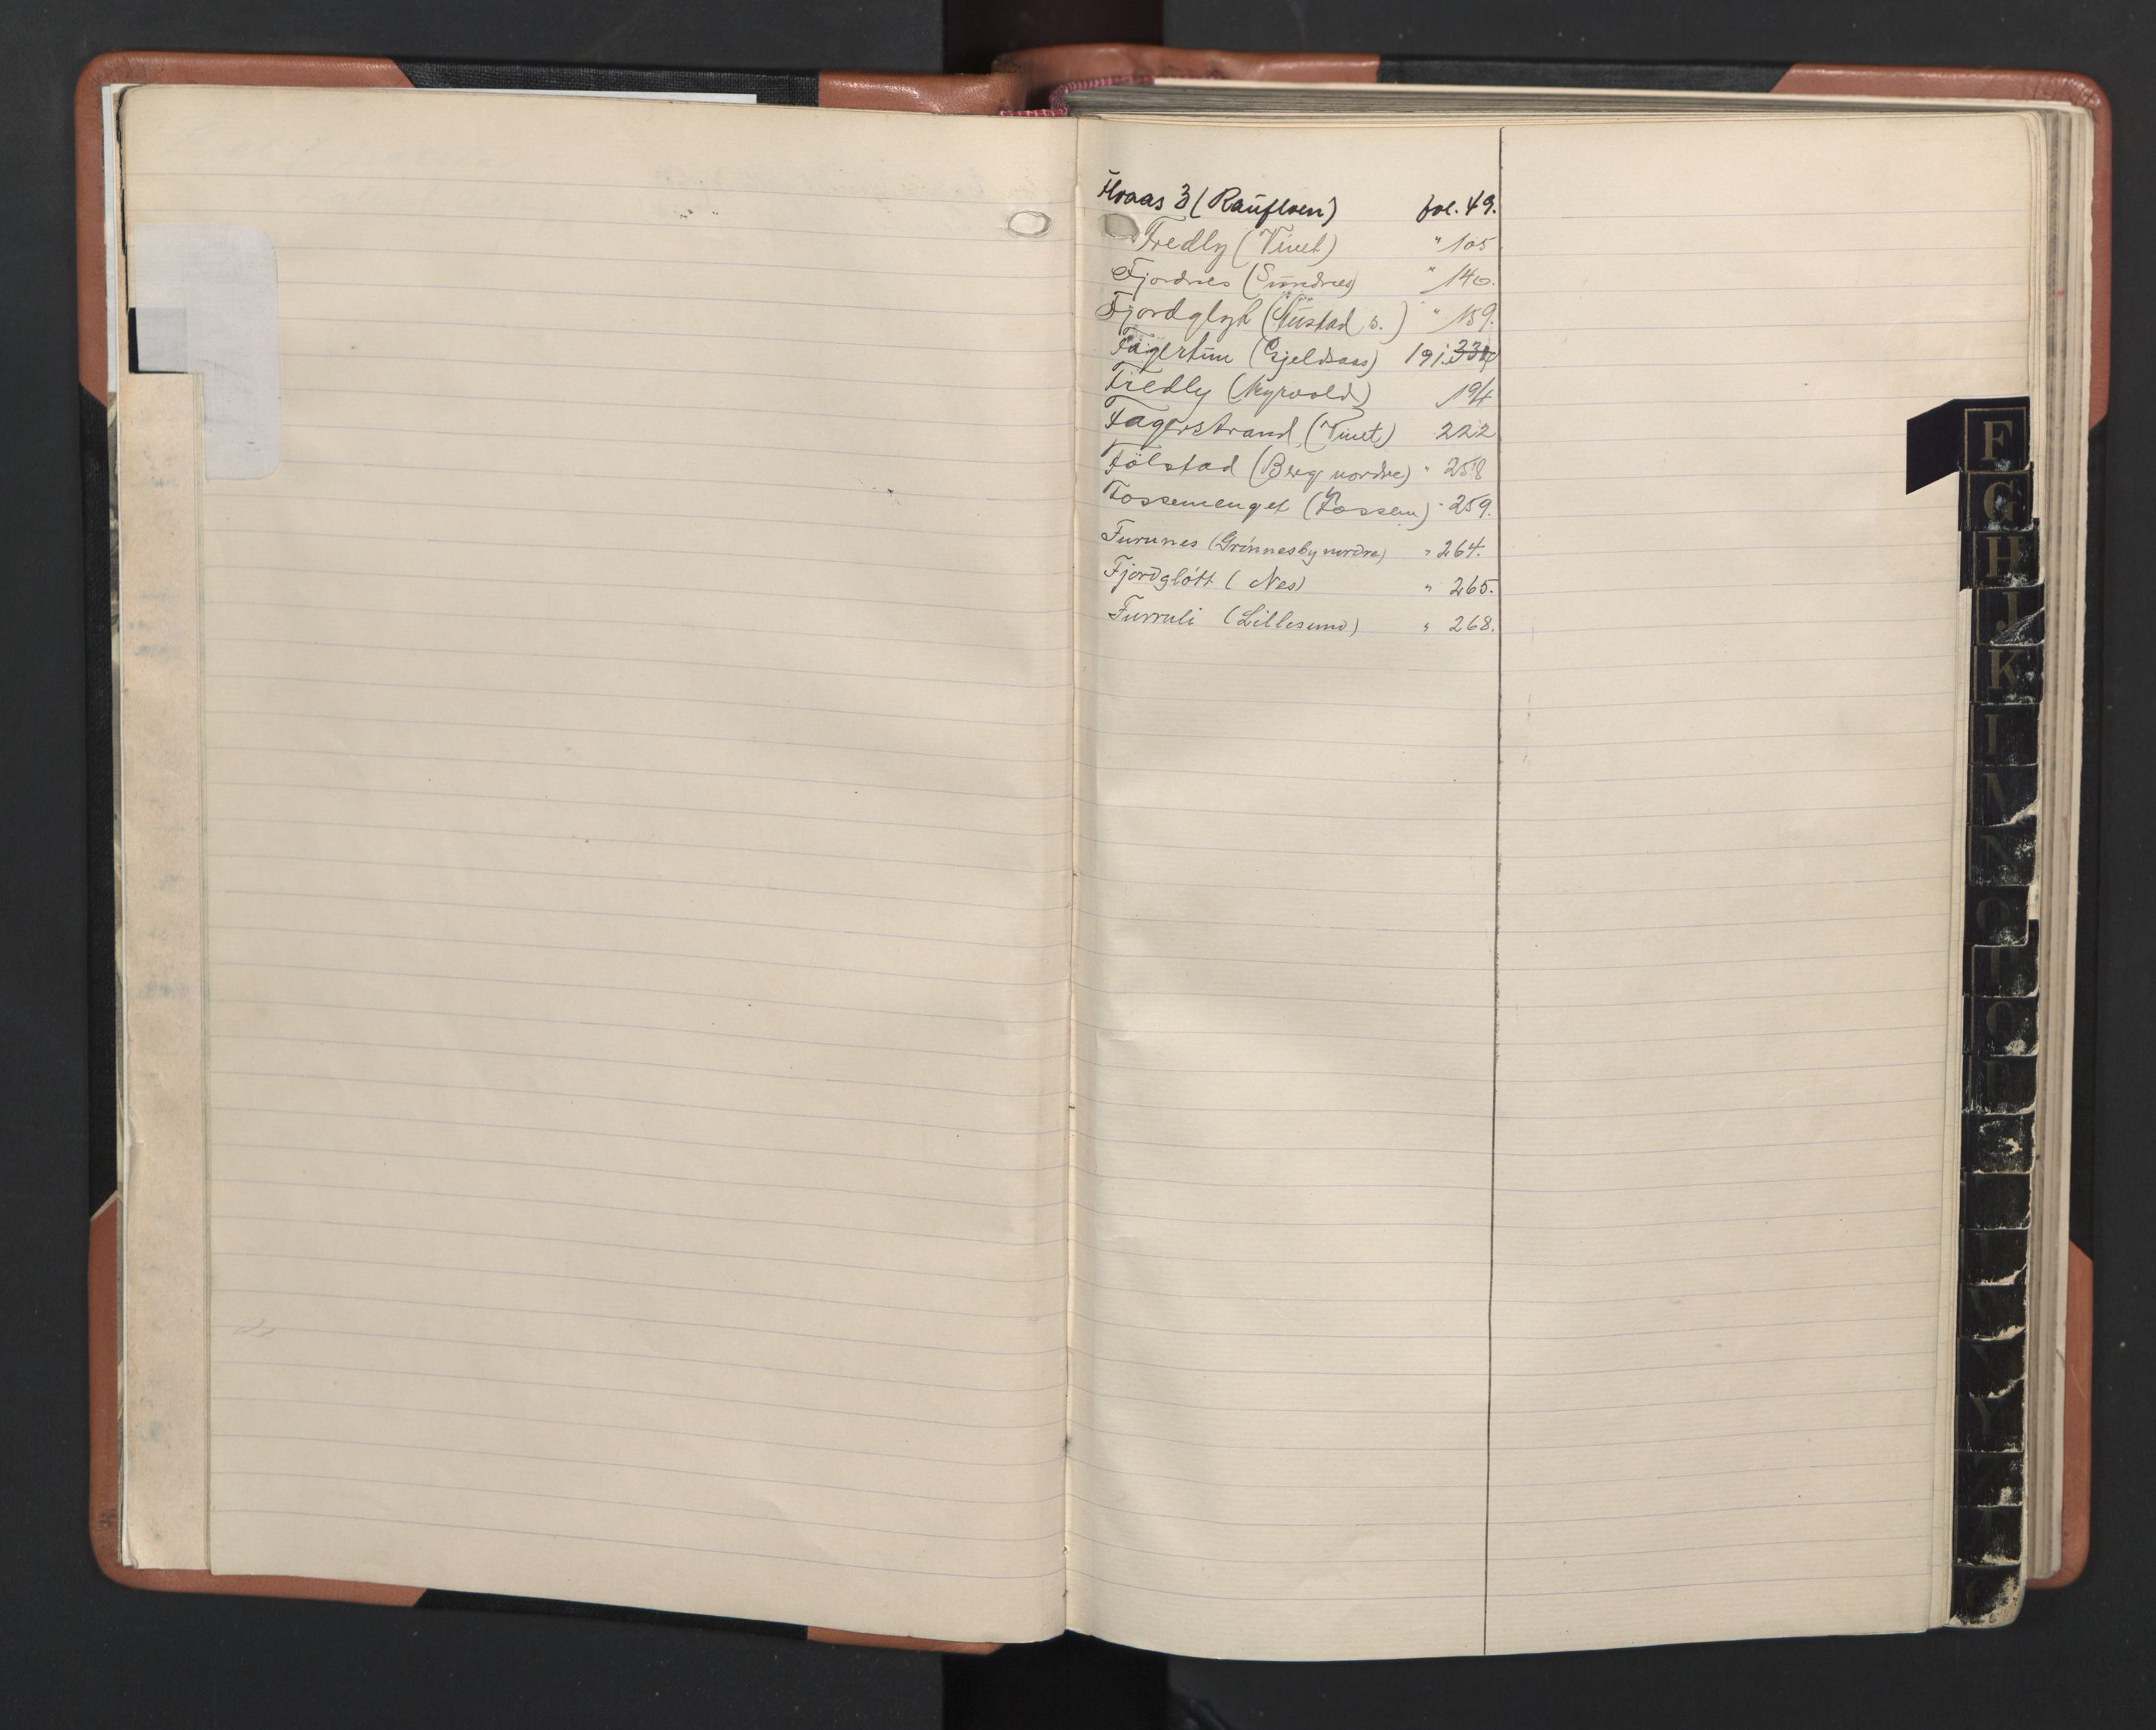 Floaas 3 (Raufloen) fol. 49.
Fredly (Vinet) " 105
Fjordnes (Sundnes) " 140.
Fjordglyt (Sustad s.) " 159.
Fagertun (Gjeldsaas) 191. 334
Fredly (Myrvold) 194
Fagerstrand (Vinet) 222
Fölstad (Berg nordre) " 258
Fossemenget (Fossem) " 259.
Furunes (Grönnesby nordre) " 264.
Fjordglött (Nes) " 265.
Furruli (Lillesund) " 268.
F
G
H
J
K